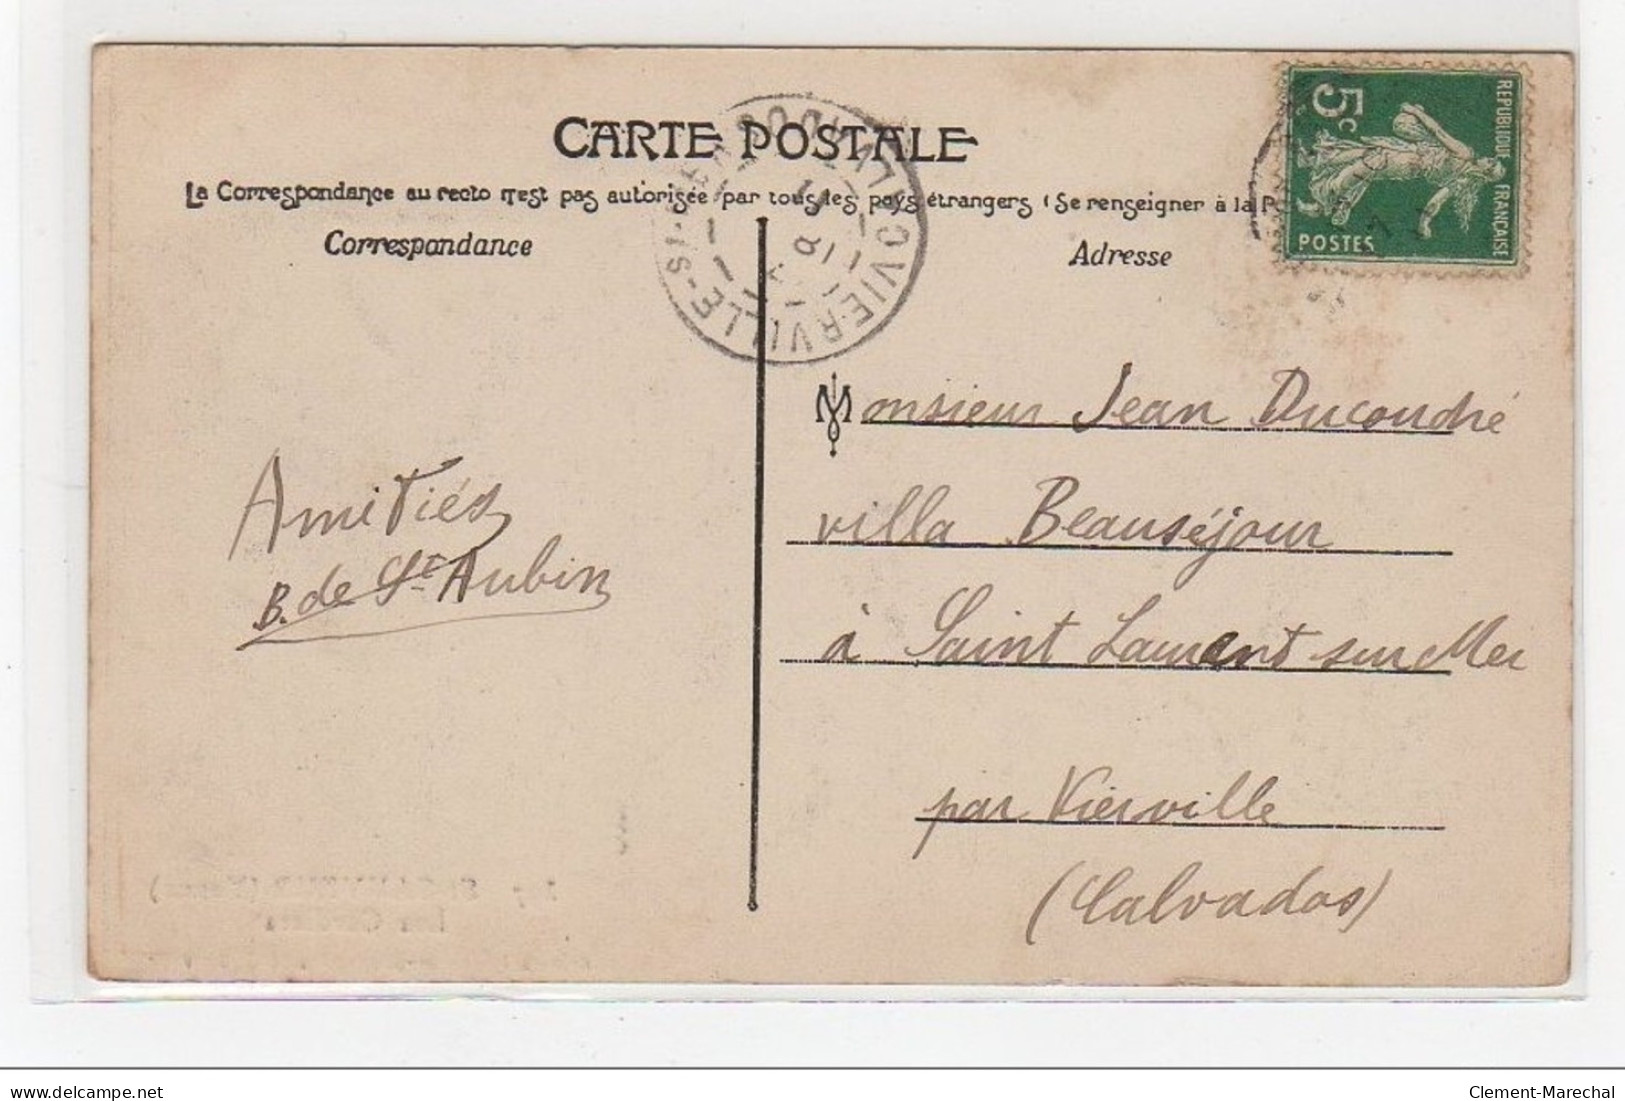 CARTE POSTALE
La Correspondance au recto n'est pas autorisée par tous les pays étrangers (Se renseigner à la P
Correspondance
Adresse
5c
REPUBLIQUE FRANÇAISE
POSTES
VIERVILLE-S
Amitiés
B. de St Aubin
Monsieur Jean Ducoudré
villa Beauséjour
à Saint Laurent sur Mer
par Vierville
(Calvados)
delcampe.net
Clement-Marechal